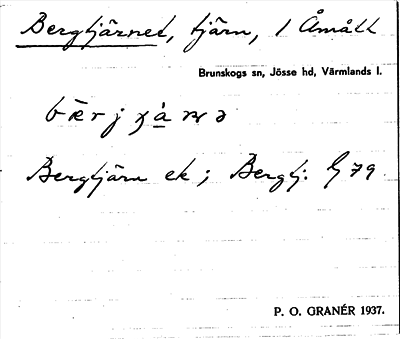 Bergtjärnet, tjärn, 1 Åmått
Brunskogs sn, Jösse hd, Värmlands l.
Bergtjärn ek; Bergtj. G 79
P. O. GRANÉR 1937.